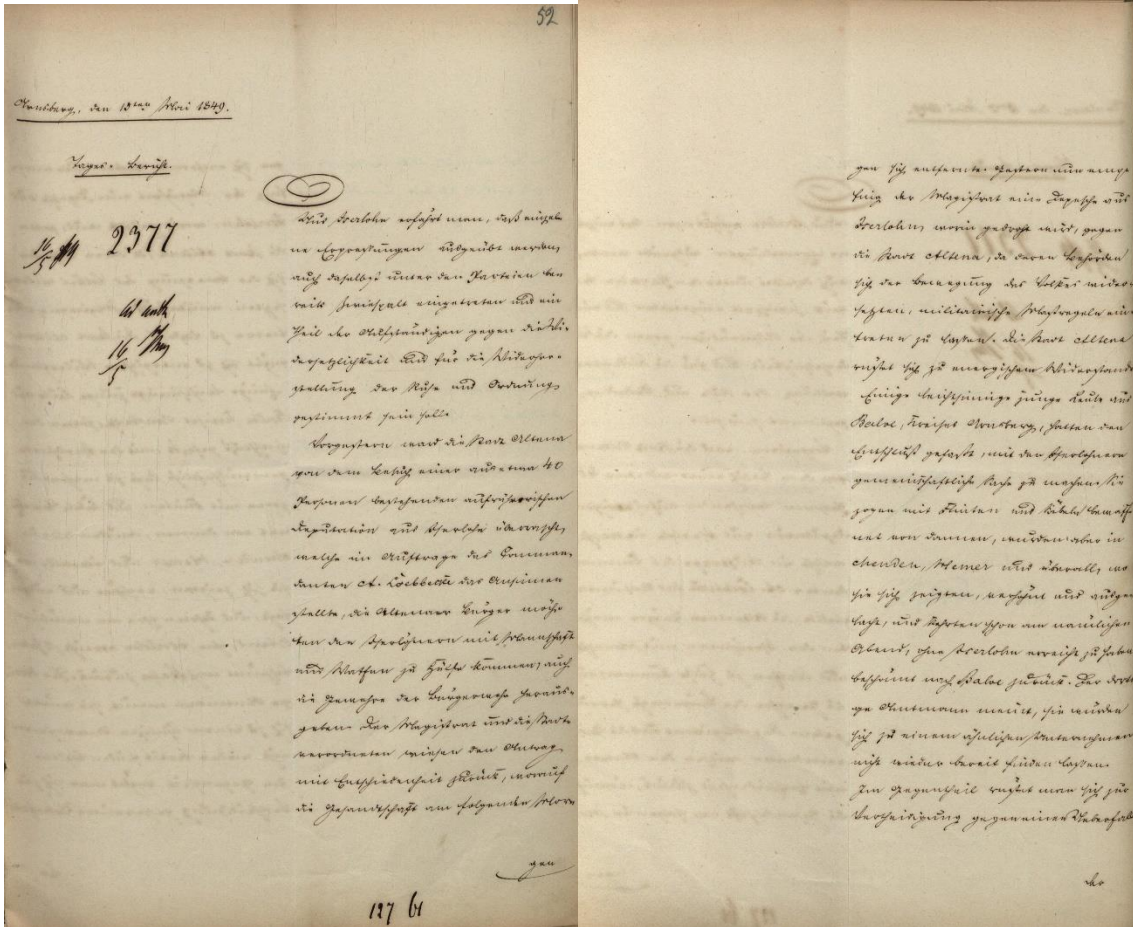 52
Arnsberg, den 13ten Mai 1849.
Tages-Bericht.
2377
16/5
16/5
Aus Iserlohn erfährt man, daß einzel
ne Erpressungen ausgeübt werden,
auch daselbst unter den Parteien be
reits Zwiespalt eingetreten und ein
Theil der Aufständigen gegen die Wi
dersetzlichkeit und für die Wiederher-
stellung der Ruhe und Ordnung
gestimmt sein solle.
Vorgestern ward die Stadt Altena
von dem Besuch einer aus etwa 40
Personen bestehenden aufrührerischen
Deputation aus Iserlohn überrascht,
welche im Auftrage des Comman
danten A. Loebbecke das Ansinnen
stellte, die Altenaer Bürger möch
ten den Iserlohnern mit Mannschaft
und Waffen zu Hülfe kommen, auch
die Gewehre der Bürgerwehr heraus-
geben. Der Magistrat und die Stadt
verordneten wiesen den Antrag
mit Entschiedenheit zurück, worauf
die Gesandtschaft am folgenden Mor
gen
127 61
gen sich entfernte. Gestern nun empf
fing der Magistrat eine Depesche aus
Iserlohn, worin gedroht wird, gegen
die Stadt Altena, da deren Behörden
sich der Bewegung des Volkes wider-
setzten, militairische Maßregeln ein-
treten zu lassen. Die Stadt Altena
rüstet sich zu energischem Widerstande
Einige leichtsinnige junge Leute aus
Balve, Kreises Arnsberg, hatten den
Entschluß gefaßt, mit den Iserlohnern
gemeinschaftliche Sache zu machen. Sie
zogen mit Flinten und Säbeln bewaff
net von dannen, wurden aber in
Menden, Hemer und überall, wo
sie sich zeigten, verhöhnt und ausge
lacht, und kehrten schon am nämlichen
Abend, ohne Iserlohn erreicht zu haben
beschämt nach Balve zurück. Der dorti
ge Amtmann meint, sie würden
sich zu einem ähnlichen Unternehmen
nicht wieder bereit finden lassen.
Im Gegentheil rüstet man sich zur
Vertheidigung gegen einen Ueberfall
der